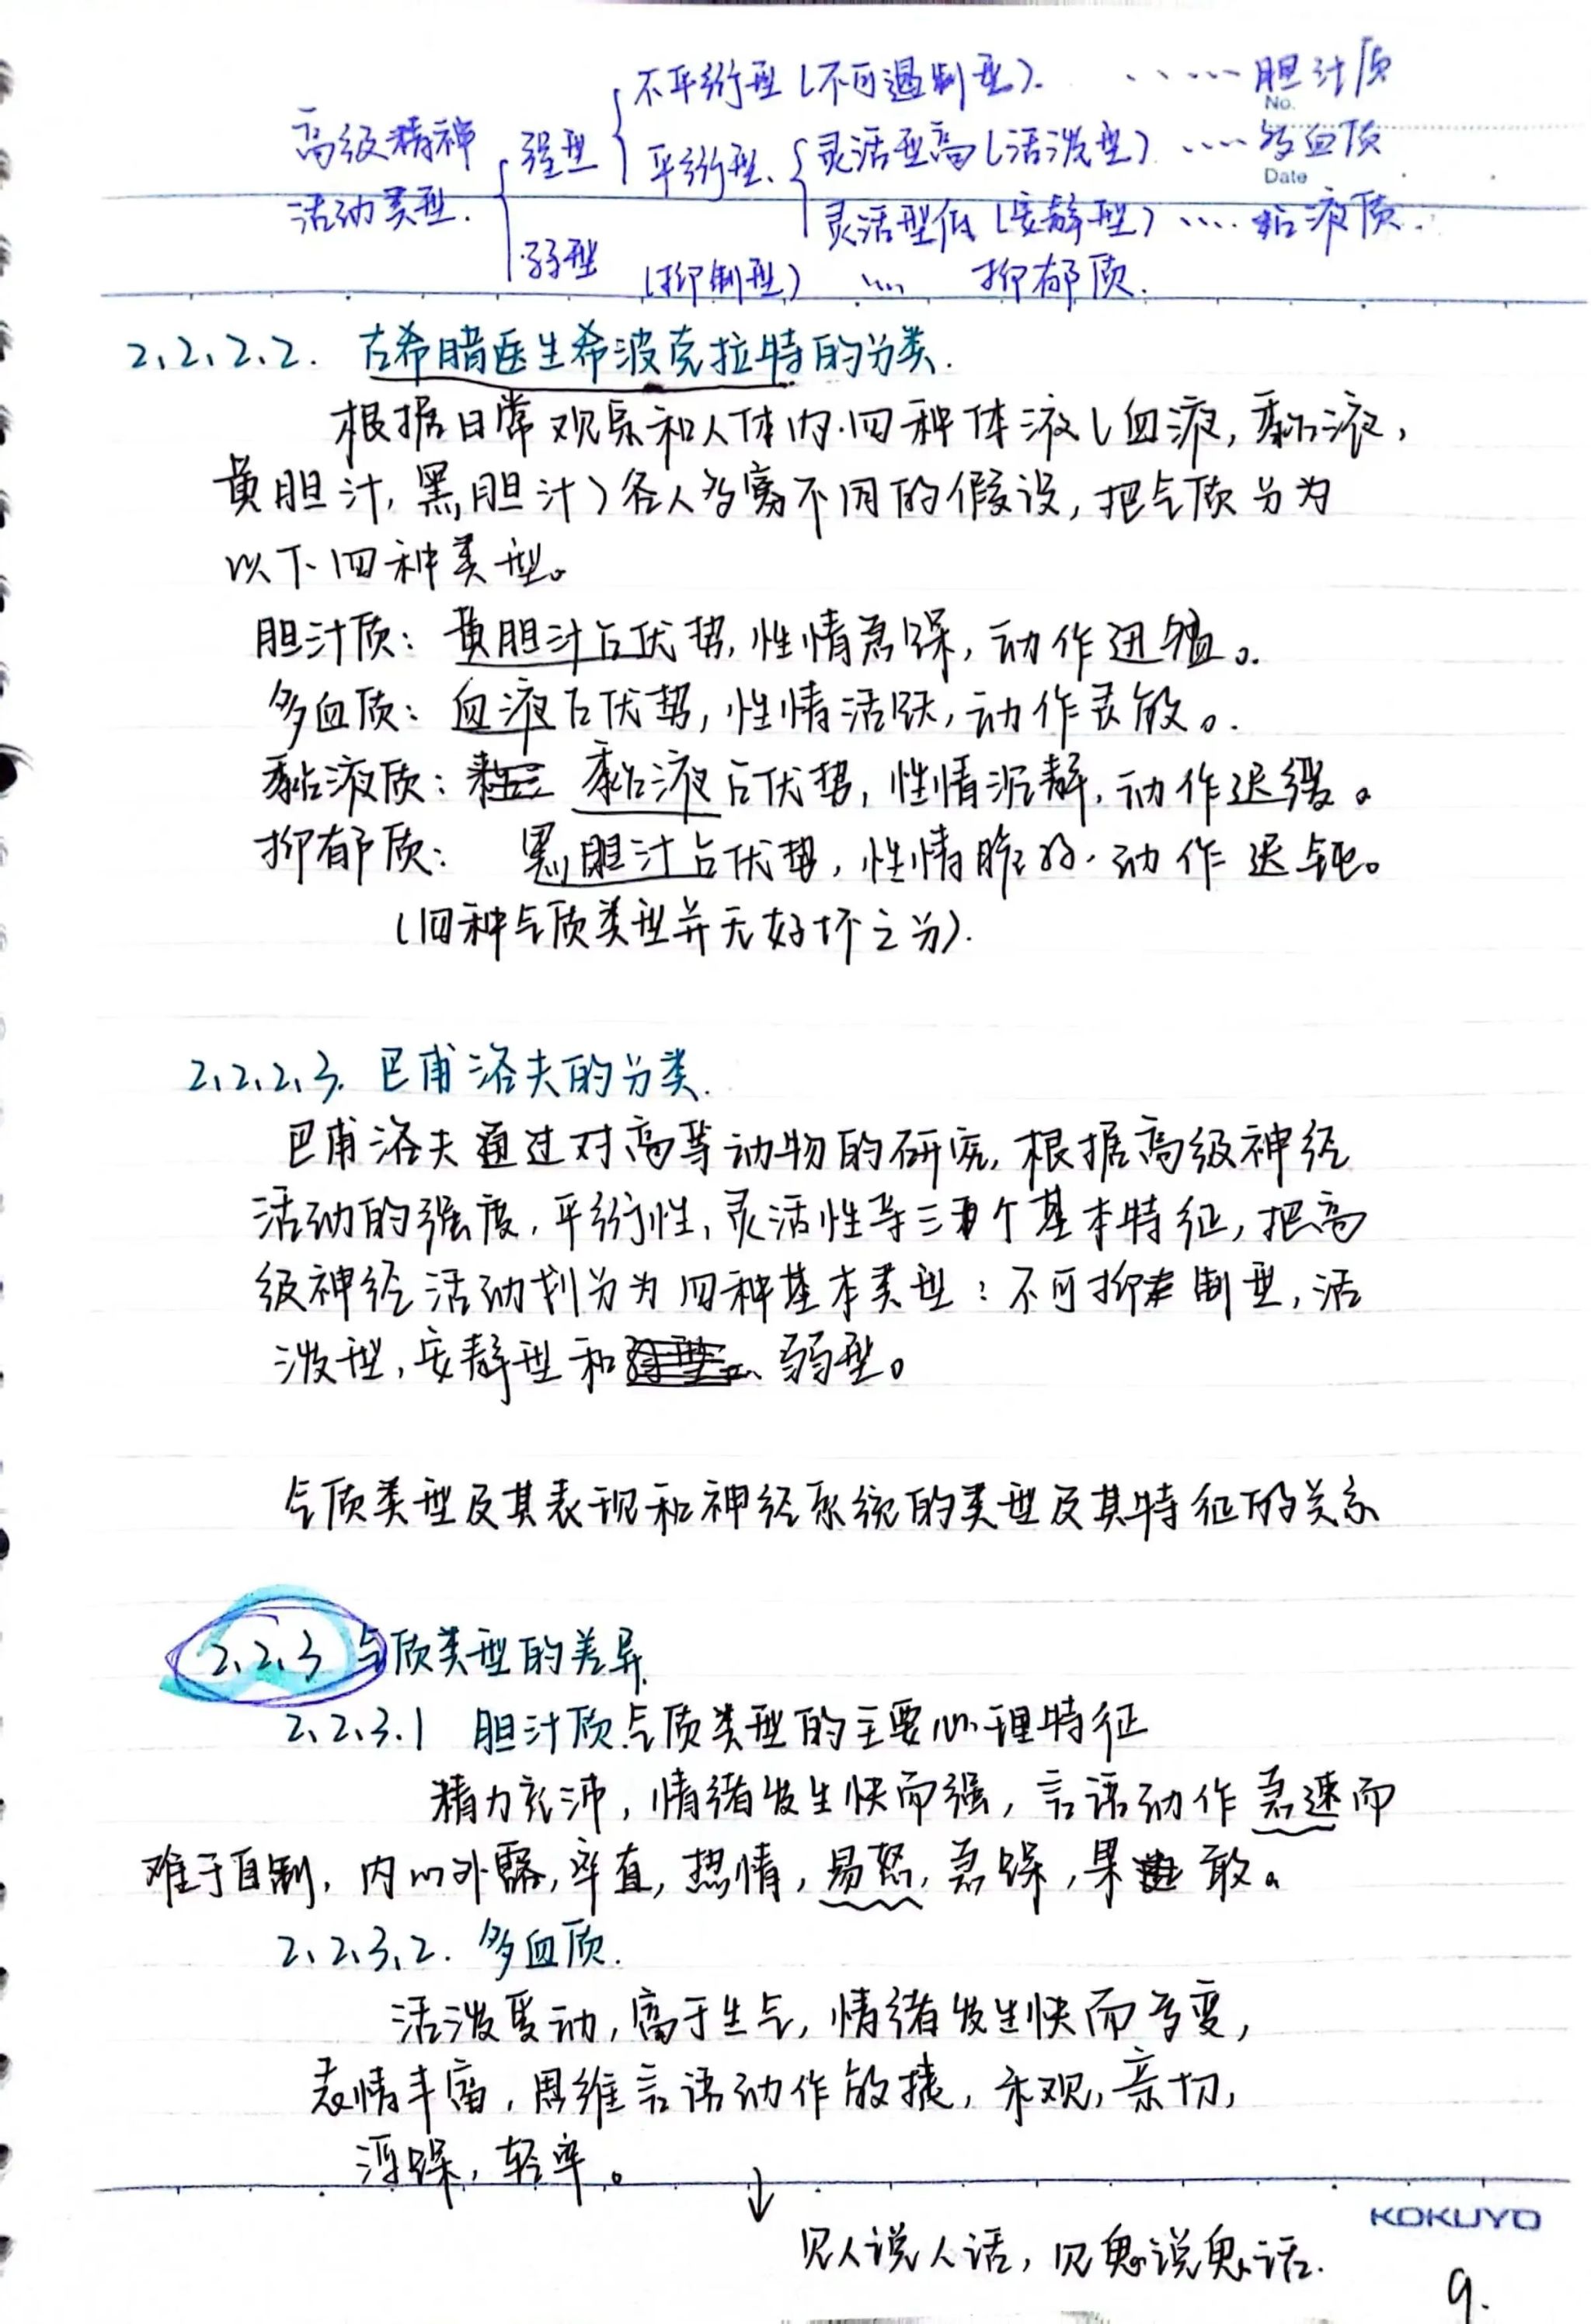 不平衡型(不可遏制型). ...... 胆汁质
No.
高级精神 强型 平衡型、 灵活型高(活泼型) .... 多血质
Date
活动类型. 灵活型低(安静型) .... 粘液质.
弱型 (抑制型) ... 抑郁质.
2、2、2、2. 古希腊医生希波克拉特的分类.
根据日常观察和人体内四种体液(血液,黏液,
黄胆汁,黑胆汁)各人多寡不同的假设,把气质分为
以下四种类型。
胆汁质: 黄胆汁占优势,性情急躁,动作迅猛。
多血质: 血液占优势,性情活跃,动作灵敏。
黏液质: 黏液占优势,性情沉静,动作迟缓。
抑郁质: 黑胆汁占优势,性情脆弱,动作迟钝。
(四种气质类型并无好坏之分).
2、2、2、3. 巴甫洛夫的分类.
巴甫洛夫通过对高等动物的研究,根据高级神经
活动的强度,平衡性,灵活性等三个基本特征,把高
级神经活动划分为四种基本类型:不可抑制型,活
泼型,安静型和弱型。
气质类型及其表现和神经系统的类型及其特征的关系
2、2、3 气质类型的差异
2、2、3.1 胆汁质气质类型的主要心理特征
精力充沛,情绪发生快而强,言语动作急速而
难于自制,内心外露,率直,热情,易怒,急躁,果敢。
2、2、3、2. 多血质.
活泼爱动,富于生气,情绪发生快而多变,
表情丰富,思维言语动作敏捷,乐观,亲切,
浮躁,轻率。
↓
见人说人话,见鬼说鬼话.
KOKUYO
9.